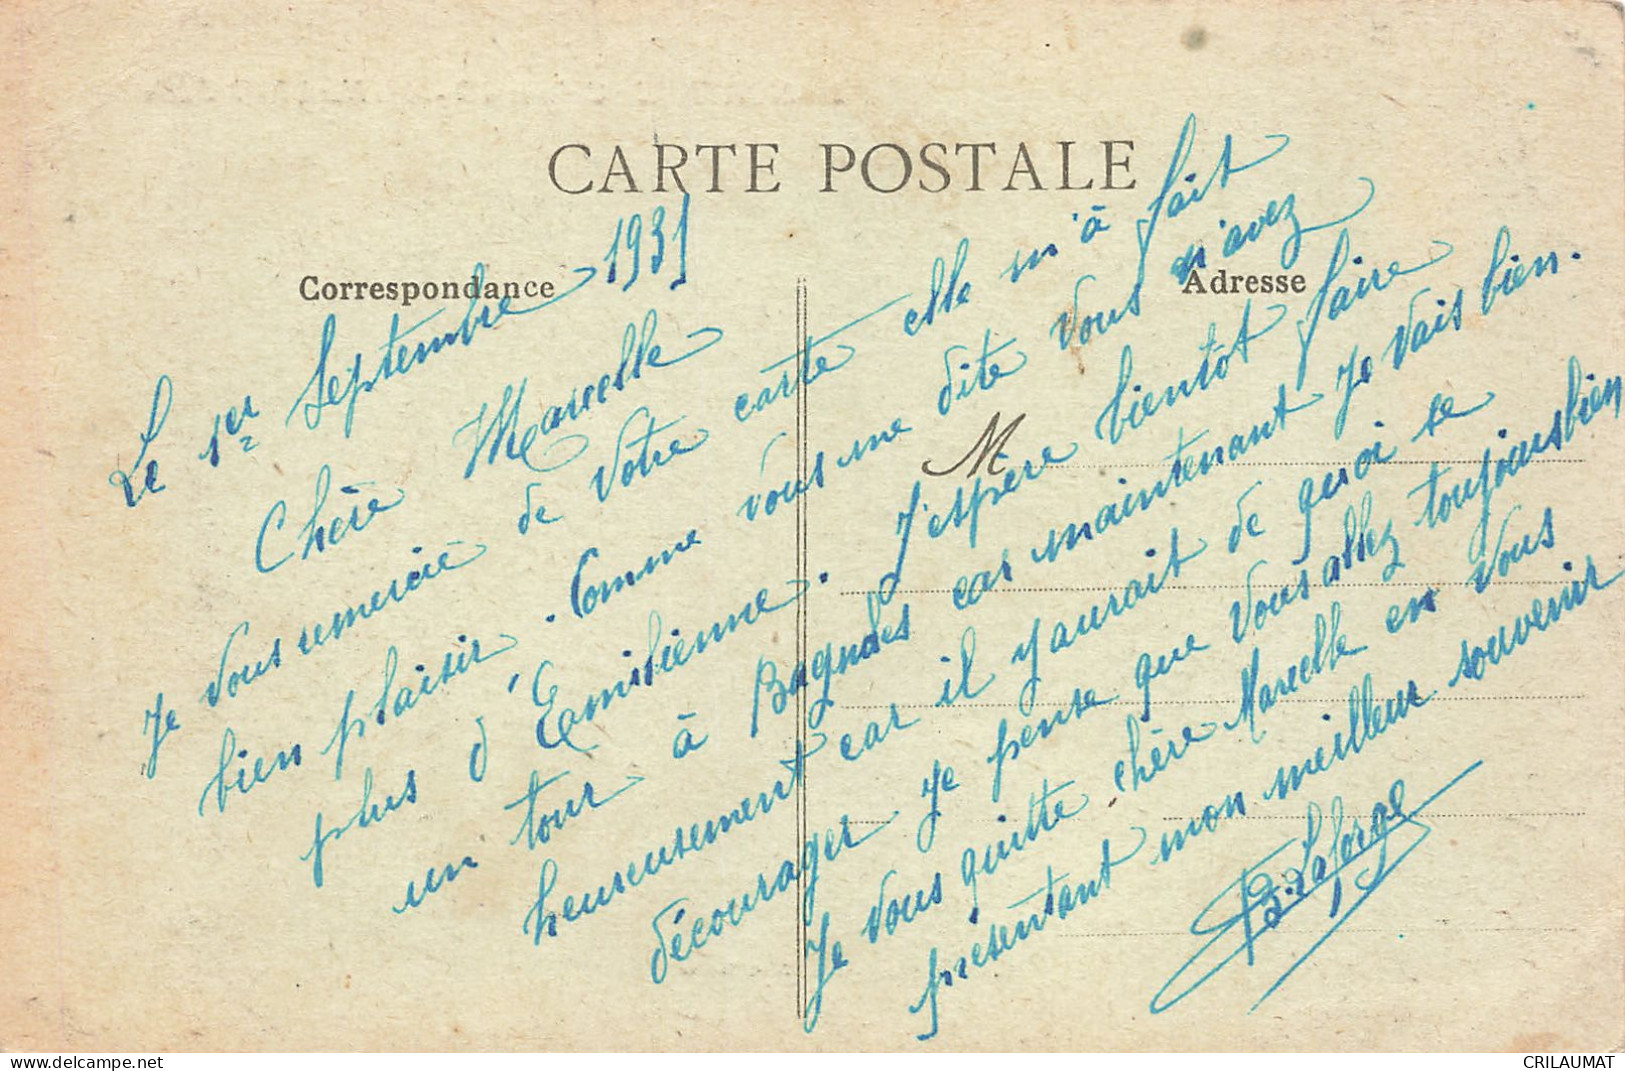 CARTE POSTALE
Correspondance
Adresse
M
Le 1er Septembre 1931
Chère Marcelle
Je vous remercie de votre carte elle m'à fait
bien plaisir. Comme vous me dite vous n'avez
plus d'Emilienne. J'espère bientôt faire
un tour à Bagnoles car maintenant je vais bien.
heureusement car il y aurait de quoi se
décourager je pense que vous allez toujours bien
Je vous quitte chère Marcelle en vous
présentant mon meilleur souvenir
Laforge
delcampe.net
CRILAUMAT